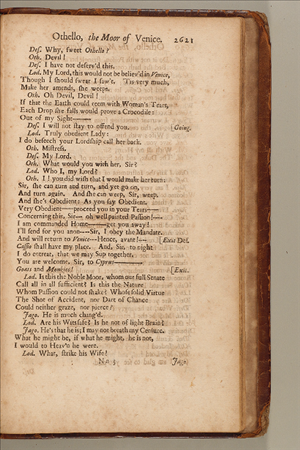 Othello, the Moor of Venice. 2621
Des. Why, sweet Othello?
Oth. Devil!
Des. I have not deserv'd this.
Lod. My Lord, this would not be believ'd in Venice,
Though I should swear I saw't. 'Tis very much,
Make her amends, she weeps.
Oth. Oh Devil, Devil!
If that the Earth could teem with Woman's Tears,
Each Drop she falls would prove a Crocodile:
Out of my Sight——
Des. I will not stay to offend you. [Going.
Lod. Truly obedient Lady:
I do beseech your Lordship call her back.
Oth. Mistress.
Des. My Lord.
Oth. What would you with her, Sir?
Lod. Who I, my Lord?
Oth. I! you did wish that I would make her turn:
Sir, she can turn and turn, and yet go on,
And turn again. And she can weep, Sir, weep.
And she's Obedient: As you say Obedient,
Very Obedient——proceed you in your Tears——
Concerning this, Sir—oh well painted Passion!—
I am commanded Home——get you away!
I'll send for you anon——Sir, I obey the Mandate,
And will return to Venice—Hence, avant!—[Exit Des.
Cassio shall have my place. And, Sir, to night
I do entreat, that we may Sup together,
You are welcome, Sir, to Cyprus——
Goats and Monkies! [Exit.
Lod. Is this the Noble Moor, whom our full Senate
Call all in all sufficient? Is this the Nature
Whom Passion could not shake? Whose solid Virtue
The Shot of Accident, nor Dart of Chance
Could neither graze, nor pierce?
Jago. He is much chang'd.
Lod. Are his Wits safe? Is he not of light Brain?
Jago. He's that he is; I may not breath my Censure,
What he might be, if what he might, he is not,
I would to Heav'n he were.
Lod. What, strike his Wife!
Jago.